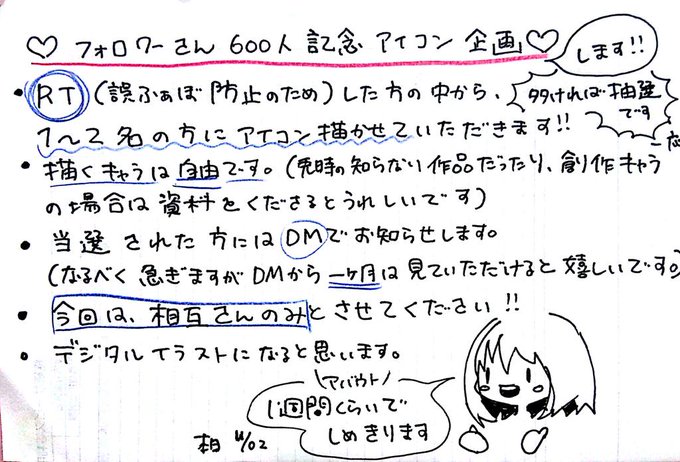 ♡ フォロワーさん 600人 記念 アイコン 企画♡
します!!
・RT (誤ふぁぼ防止のため)した方の中から、
多ければ抽選
です
1〜2名の方にアイコン描かせていただきます!!
・描くキャラは自由です。(兎時の知らない作品だったり、創作キャラ
の場合は資料をくださるとうれしいです)
・当選された方にはDMでお知らせします。
(なるべく急ぎますがDMから一ヶ月は見ていただけると嬉しいです。)
・今回は、相互さんのみとさせてください!!
・デジタルイラストになると思います。
\アバウト/
1週間くらいで
しめきります